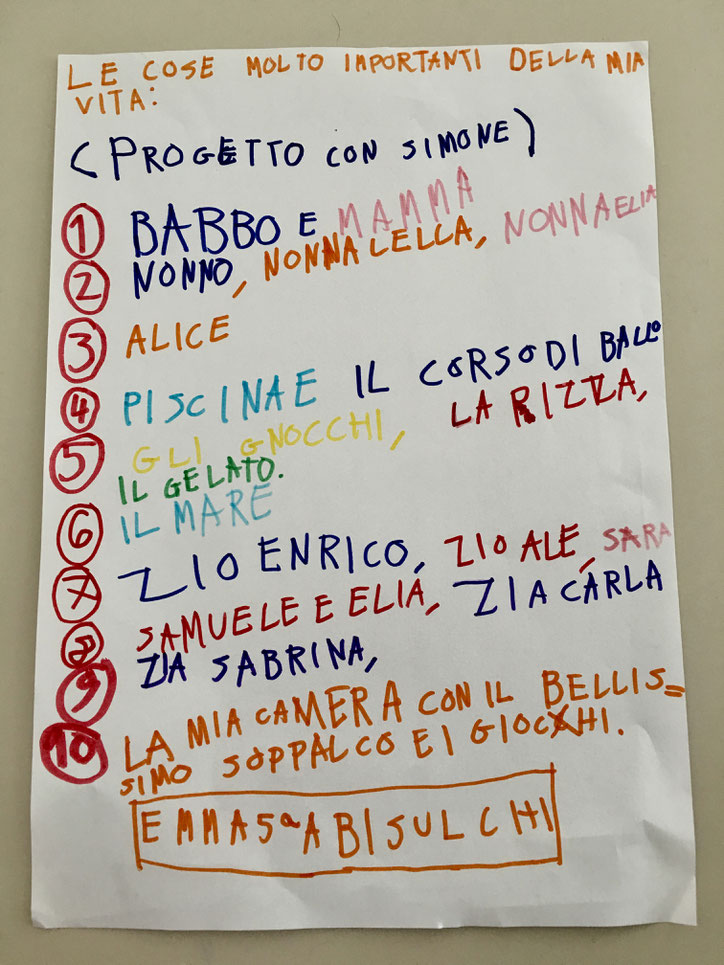 LE COSE MOLTO IMPORTANTI DELLA MIA
VITA:
(PROGETTO CON SIMONE)
1 BABBO E MAMMA
2 NONNO, NONNA LELLA, NONNA ELIA
3 ALICE
4 PISCINA E IL CORSO DI BALLO
5 GLI GNOCCHI, LA PIZZA,
IL GELATO.
6 IL MARE
7 ZIO ENRICO, ZIO ALE, SARA
8 SAMUELE E ELIA, ZIA CARLA
9 ZIA SABRINA,
10 LA MIA CAMERA CON IL BELLIS=
SIMO SOPPALCO E I GIOCHI.
EMMA 5ª A BISULCHI